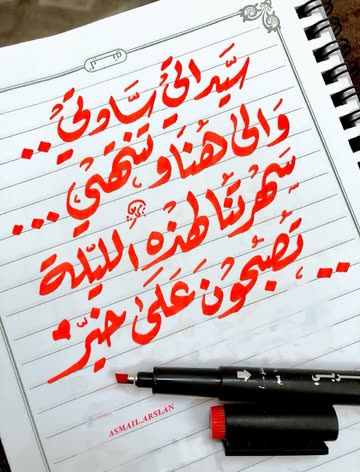 سَيِّداتيْ سَادتيْ...
وَالىٰ هُنَا وَ تَنتهيْ...
سَهْرتُنا لهذهِ الليّلة
.. تُصْبحُونَ عَلىَٰ خيّرْ
ASMAIL.ARSLAN